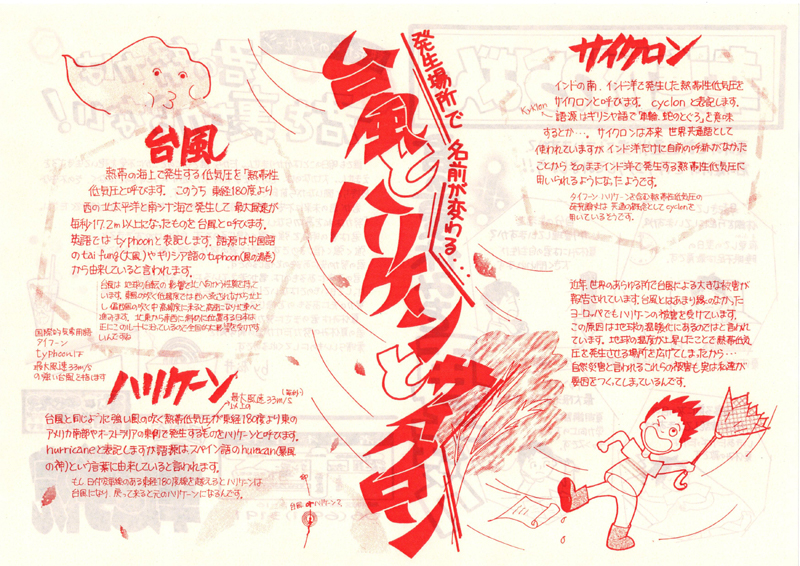 発生場所で 名前が変わる...
台風とハリケーンとサイクロン
台風
熱帯の海上で発生する低気圧を「熱帯性
低気圧と呼びます。このうち 東経180度より
西の北太平洋と南シナ海で発生して 最大風速が
毎秒17.2m以上になったものを台風と呼びます。
英語では typhoonと表記します。語源は中国語
のtai fung(大風)やギリシア語のtuphoon(風の渦巻)
から由来していると言われます。
台風は 地球の自転の影響で
国際的気象用語
タイフーン
typhoonは
最大風速33m/s
の強い台風を指します
ハリケーン
最大風速33m/s
以上の
(毎秒)
台風と同じように強い風の吹く熱帯低気圧が東経180度より東の
アメリカ南部やオーストラリアの東側で発生するものをハリケーンと呼びます。
hurricaneと表記しますが語源はスペイン語のhuracan(暴風
の神)という言葉に由来していると言われます。
もし 日付変更線のある東経180度線を越えるとハリケーンは
台風になり、戻って来ると元のハリケーンになるんです。
台風
ハリケーン
サイクロン
インドの南、インド洋で発生した熱帯性低気圧を
サイクロンと呼びます。 cyclonと表記します。
Kyklon
語源はギリシャ語で「車輪、蛇のとぐろ」を意味
するとか…。サイクロンは本来 世界共通語として
使われていますが インド洋だけに自前の呼称がなかった
ことから そのままインド洋で発生する熱帯性低気圧に
用いられるようになったようです。
タイフーン ハリケーンを含む熱帯低気圧の
共通の総称としてcyclonを
用いているそうです。
近年、世界のあらゆる所で台風による大きな被害が
報告されています。台風とはあまり縁のなかった
ヨーロッパでもハリケーンの被害を受けています。
この原因は地球の温暖化にあるのではと言われ
ています。地球の温度が上昇したことで熱帯低気
圧を発生させる場所を広げてしまったから…
自然災害と言われるこれらの被害も実は私達が
要因をつくってしまっているんです。